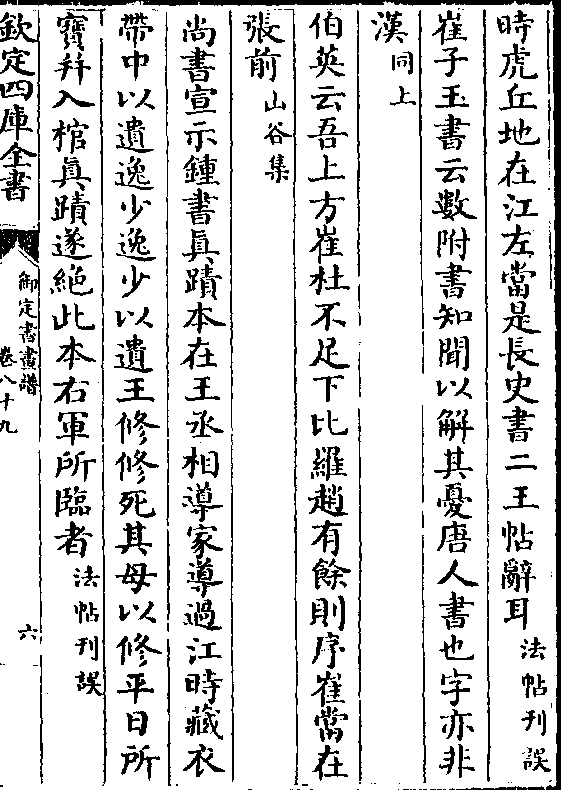 時虎丘地在江左當是長史書二王帖辭耳法帖刊誤
崔子玉書云數附書知聞以解其憂唐人書也字亦非
漢同上
伯英云吾上方崔杜不足下比羅趙有餘則序崔當在
張前山谷集
尚書宣示鍾書真蹟本在王丞相導家導過江時藏衣
帶中以遺逸少逸少以遺王修修死其母以修平日所
寶并入棺真蹟遂絕此本右軍所臨者法帖刊誤
欽定四庫全書
御定書畫譜
卷八十九
六